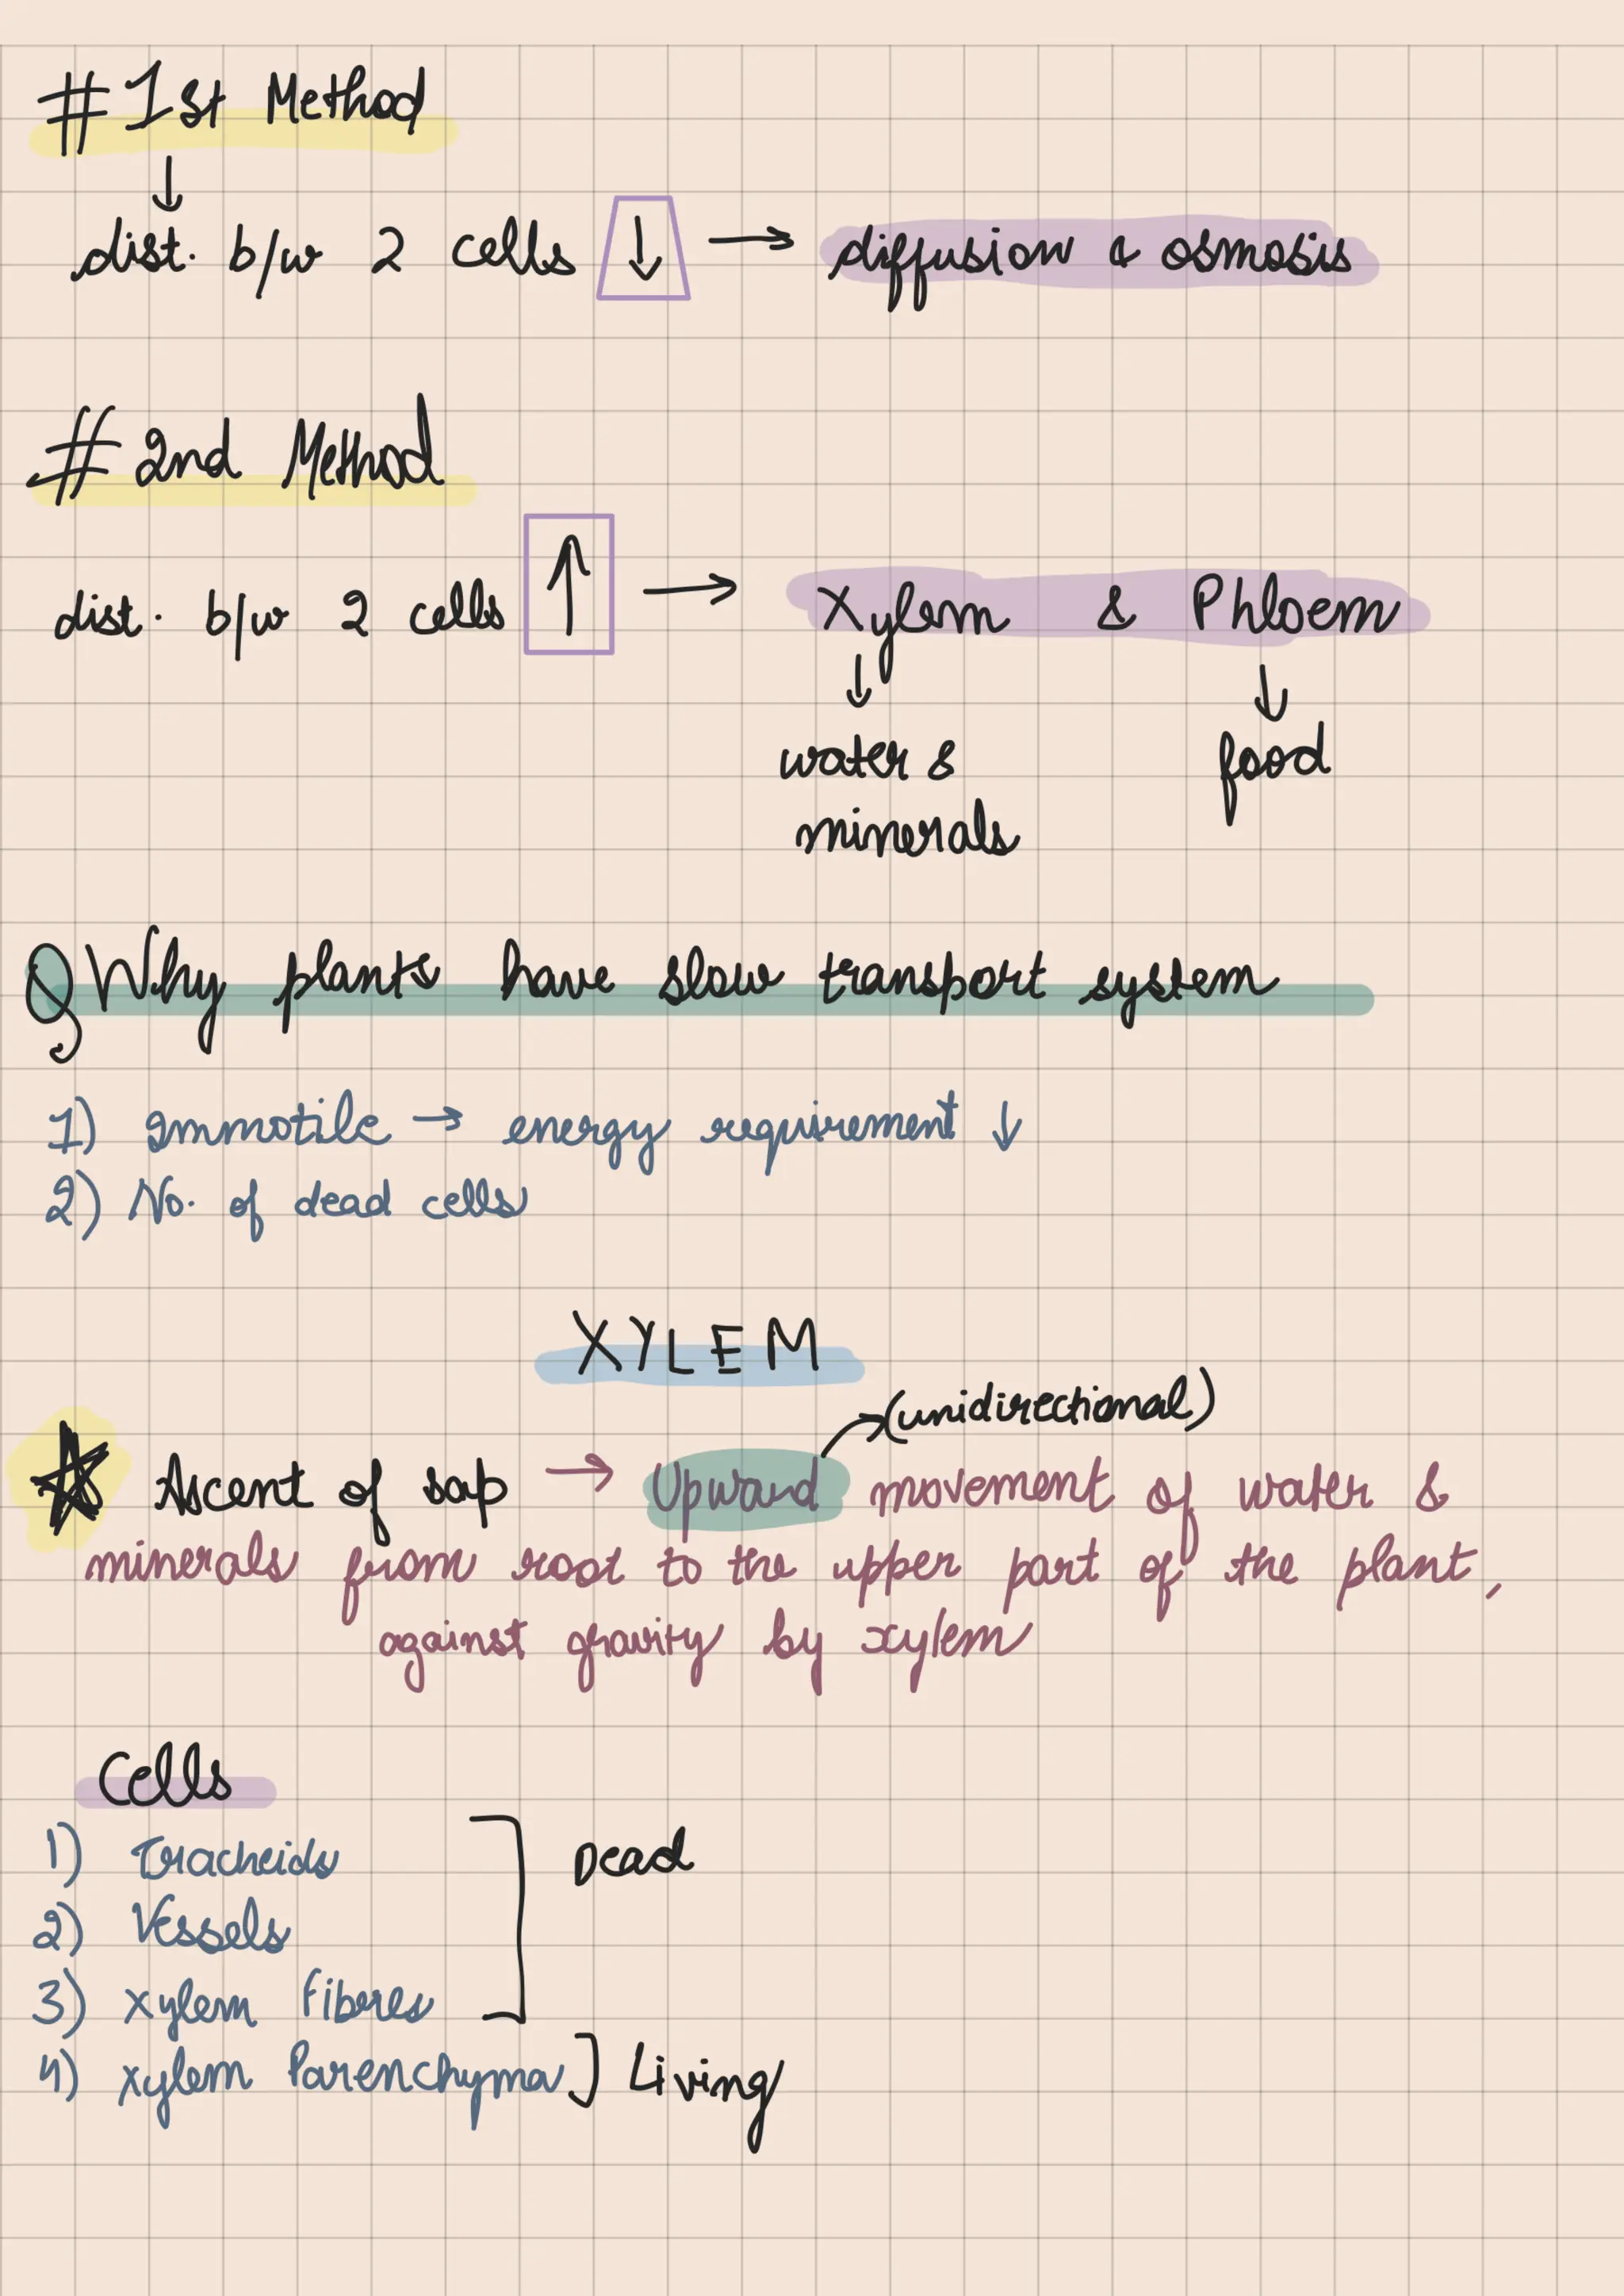 # 1st Method
↓
dist. b/w 2 cells ↓ → diffusion & osmosis
# 2nd Method
dist. b/w 2 cells ↑ → Xylem & Phloem
↓ ↓
water & food
minerals
Q Why plants have slow transport system
1) Immotile → energy requirement ↓
2) No. of dead cells
XYLEM
(unidirectional)
Ascent of sap → Upward movement of water &
minerals from root to the upper part of the plant,
against gravity by xylem
Cells
1) Tracheids
Dead
2) Vessels
3) Xylem Fibres
4) Xylem Parenchyma] Living